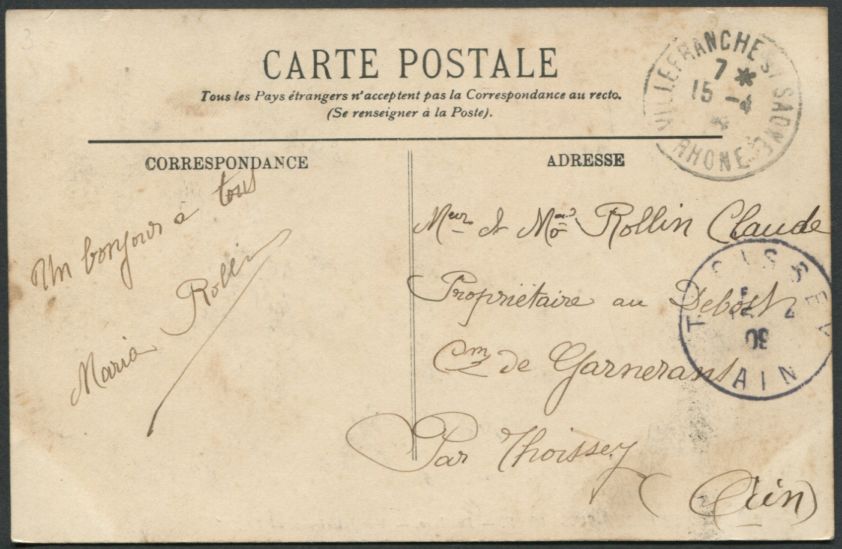 CARTE POSTALE
Tous les Pays étrangers n'acceptent pas la Correspondance au recto.
(Se renseigner à la Poste).
VILLEFRANCHE-S/-SAONE
7 *
15 -4
RHONE
CORRESPONDANCE
ADRESSE
Un bonjour à tous
Maria Rollin
Meur & Mme Rollin Claude
Propriétaire au Debost
Cm de Garnerans
Par Thoissey
(Ain)
THOISSEY
09
AIN
3